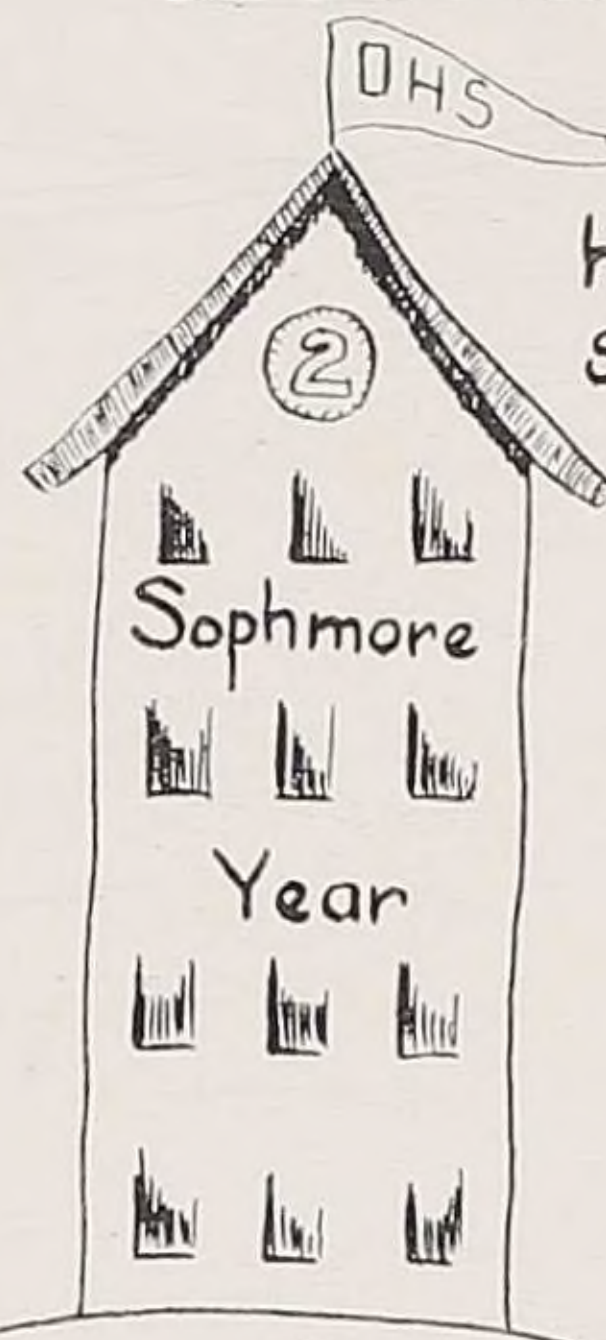 OHS
2
Sophmore
Year